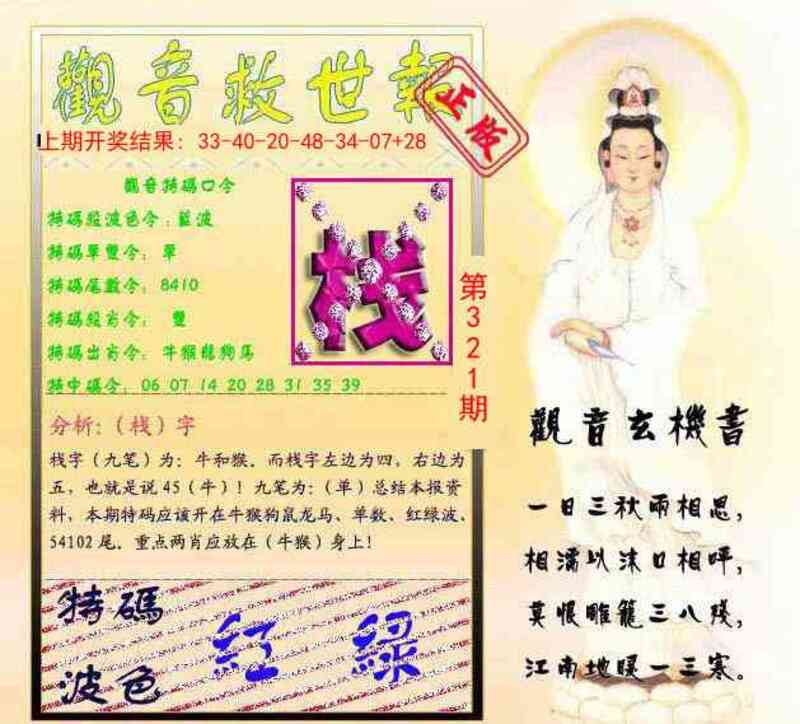 觀音救世報
正版
上期开奖结果：33-40-20-48-34-07+28
觀音特碼口令
特碼殺波色令：藍波
特碼單雙令：單
特碼尾數令：8410
特碼殺肖令：雙
特碼出肖令：牛猴龍狗馬
特中碼令：06 07 14 20 28 31 35 39
栈
第321期
分析:（栈）字
栈字（九笔）为：牛和猴．而栈字左边为四，右边为
五，也就是说45（牛）！九笔为：（单）总结本报资
料，本期特码应该开在牛猴狗鼠龙马、单数、红绿波、
54102尾．重点两肖应放在（牛猴）身上！
特碼
波色
紅 綠
觀音玄機書
一日三秋兩相思，
相濡以沫口相呼，
莫恨雕籠三八殘，
江南地暖一三寒。